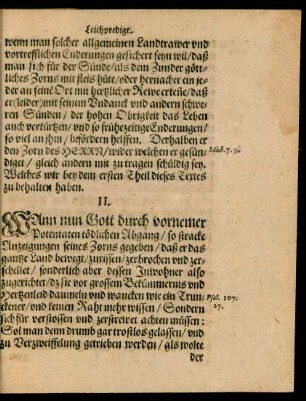 Leichpredigt.
wenn man solcher allgemeinen Landtrawer vnd
vortrefflichen Enderungen gesichert seyn wil / daß
man sich für der Sünde / als dem Zunder gött-
liches Zorns mit fleis hüte / oder hernacher ein je-
der an seinē Ort mit hertzlicher Rewverkeñe / daß
er (leider) mit seinem Vndanck vnd andern schwe-
ren Sünden / der hohen Obrigkeit das Leben
auch verkürtzen / vnd so frühezeitige Enderungen /
so viel an ihm / befördern helffen. Derhalben er
den Zorn des HERRN / wider welchen er gesün-
diget / gleich andern mit zu tragen schüldig sey.
Welches wir bey dem ersten Theil dieses Textes
zu behalten haben.
Mich. 7. 9.
II.
WAnn nun Gott durch vornemer
Potentaten tödlichen Abgang / so starcke
Anzeigungen seines Zorns gegeben / daß er das
gantze Land bewegt / zurissen / zerbrochen vnd zer-
schellet / sonderlich aber dessen Inwohner also
zugerichtet / dz sie vor grossem Bekümmernis vnd
Hertzenleid daumeln vnd wancken wie ein Trun-
ckener / vnd keinen Raht mehr wissen / Sondern
sich für verstossen vnd zerstrewet achten müssen:
Sol man denn drumb gar trostlos gelassen / vnd
zu Verzweiffelung getrieben werden / als wolte
Psal. 107.
27.
der